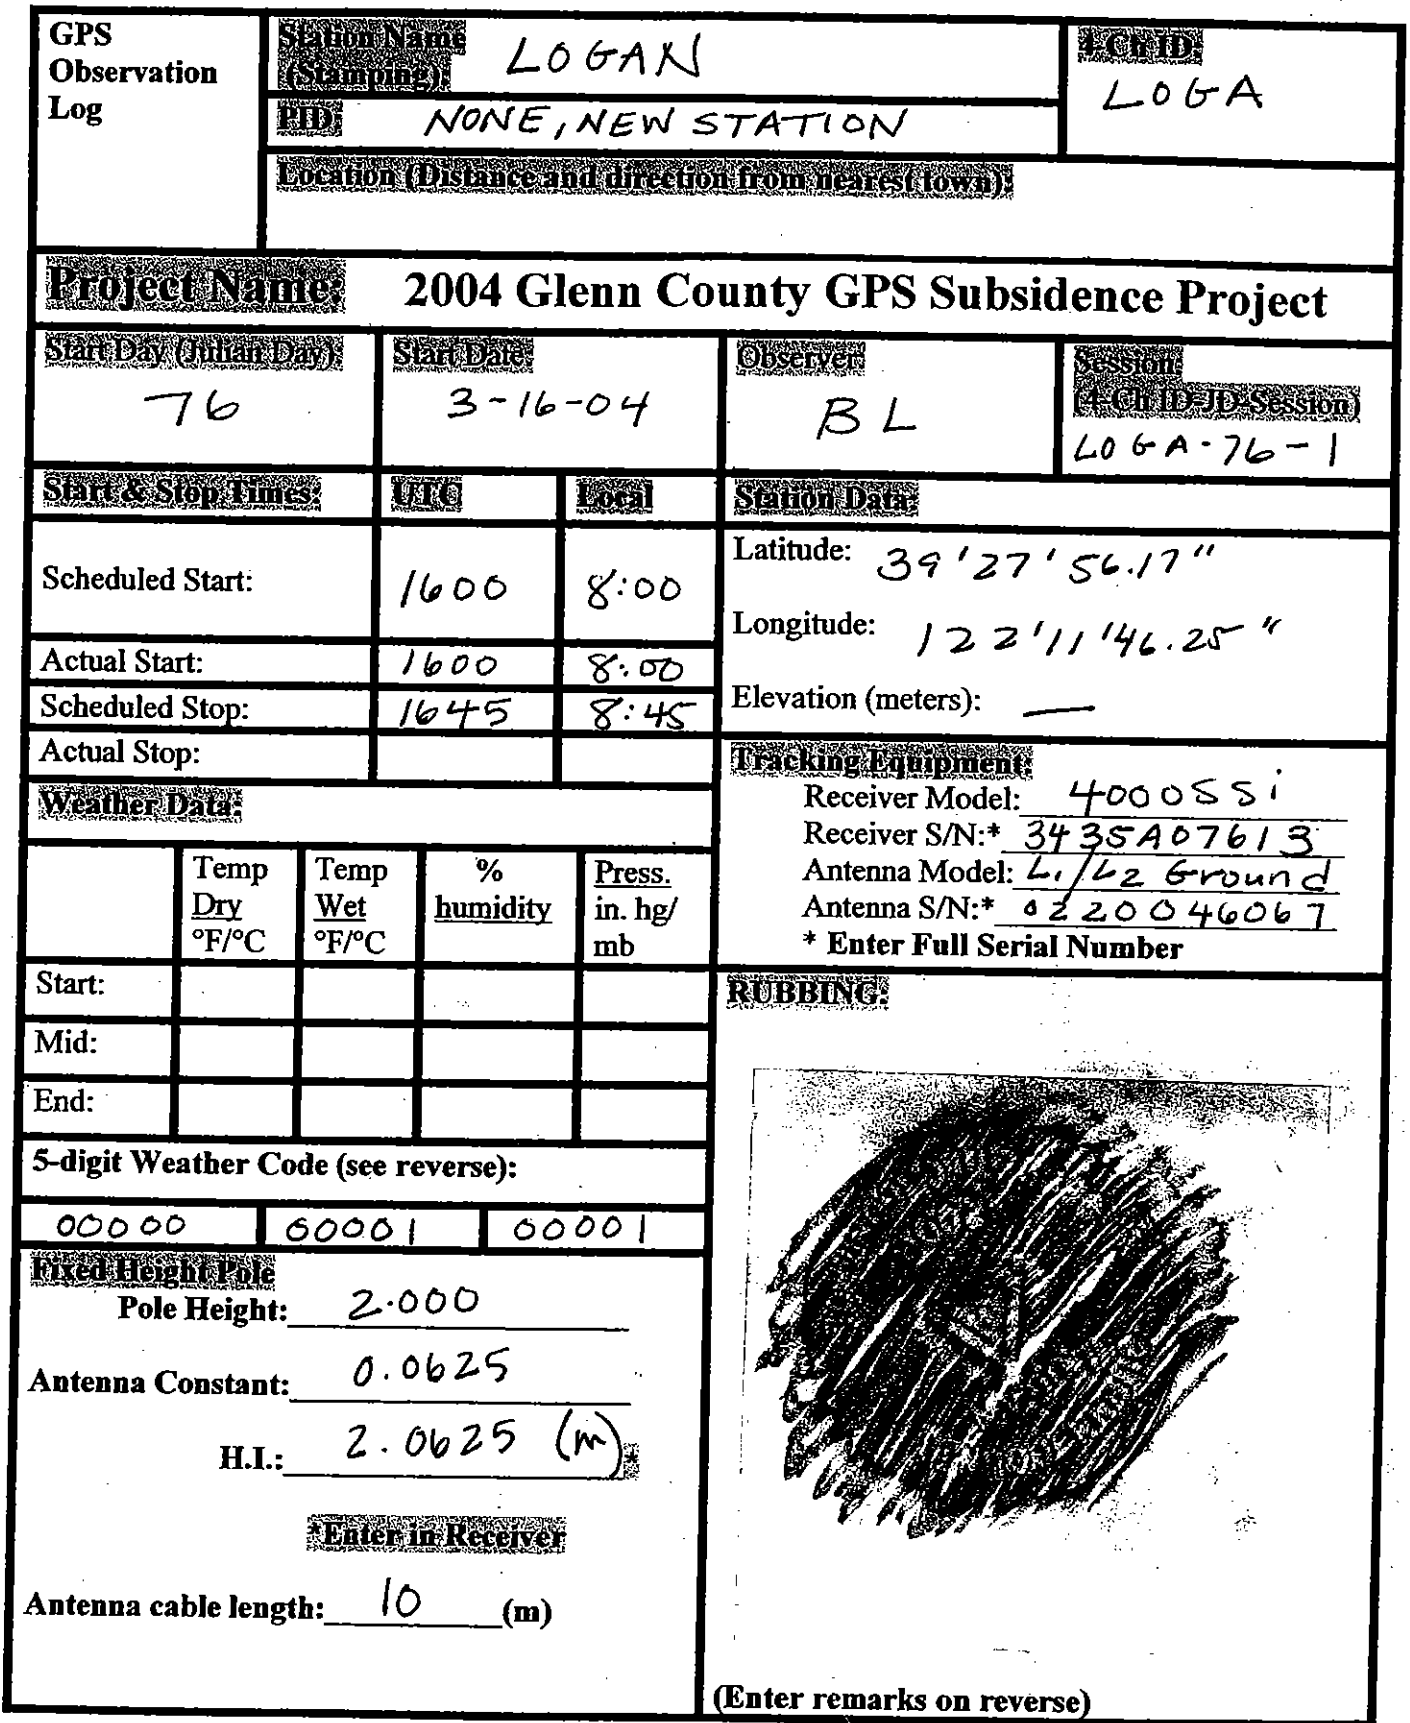 GPS
Observation
Log
Station Name
(Stamping): LOGAN
4-Ch ID:
LOGA
PID: NONE, NEW STATION
Location (Distance and direction from nearest town):
Project Name: 2004 Glenn County GPS Subsidence Project
Start Day (Julian Day):
76
Start Date:
3-16-04
Observer:
BL
Session:
(4-Ch ID-JD-Session)
LOGA-76-1
Start & Stop Times: UTC Local
Scheduled Start: 1600 8:00
Actual Start: 1600 8:00
Scheduled Stop: 1645 8:45
Actual Stop:
Station Data:
Latitude: 39'27'56.17"
Longitude: 122'11'46.25"
Elevation (meters): —
Tracking Equipment:
Receiver Model: 4000SSi
Receiver S/N:* 3435A07613
Antenna Model: L1/L2 Ground
Antenna S/N:* 0220046067
* Enter Full Serial Number
Weather Data:
Temp Dry °F/°C
Temp Wet °F/°C
% humidity
Press. in. hg/ mb
Start:
Mid:
End:
5-digit Weather Code (see reverse):
00000 00001 00001
Fixed Height Pole
Pole Height: 2.000
Antenna Constant: 0.0625
H.I.: 2.0625 (m)*
*Enter in Receiver
Antenna cable length: 10 (m)
RUBBING:
(Enter remarks on reverse)